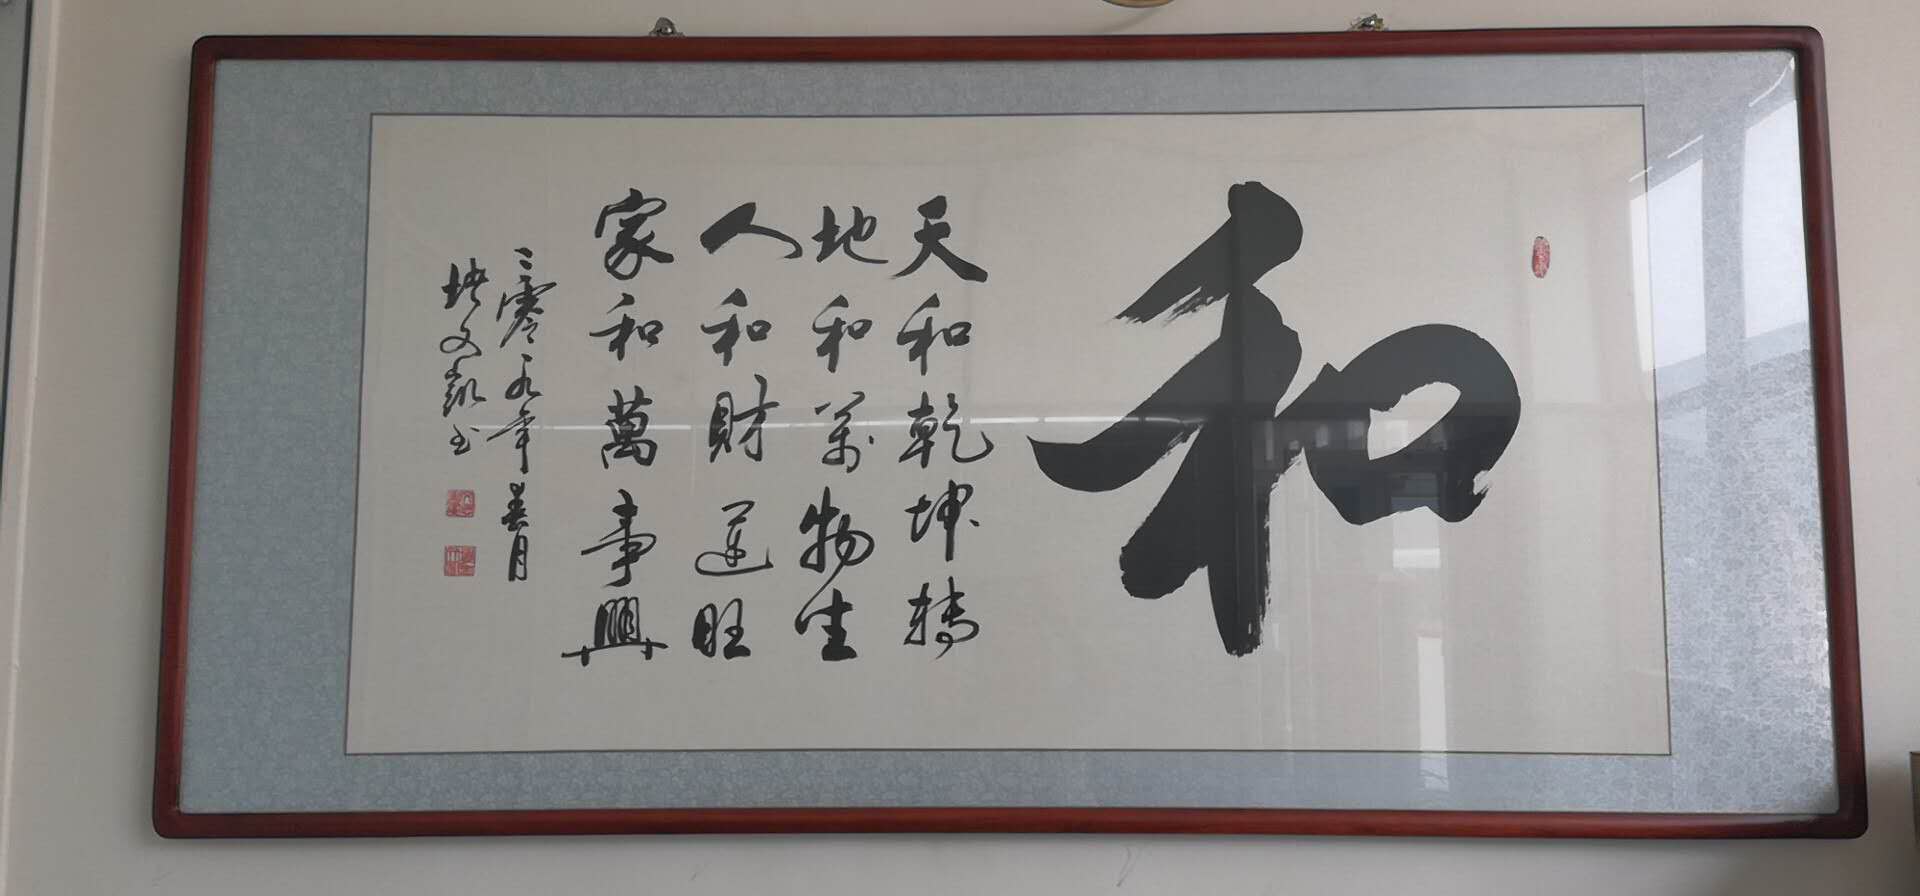 和
天和乾坤轉
地和萬物生
人和財運旺
家和萬事興
二零元年春月
文凱书